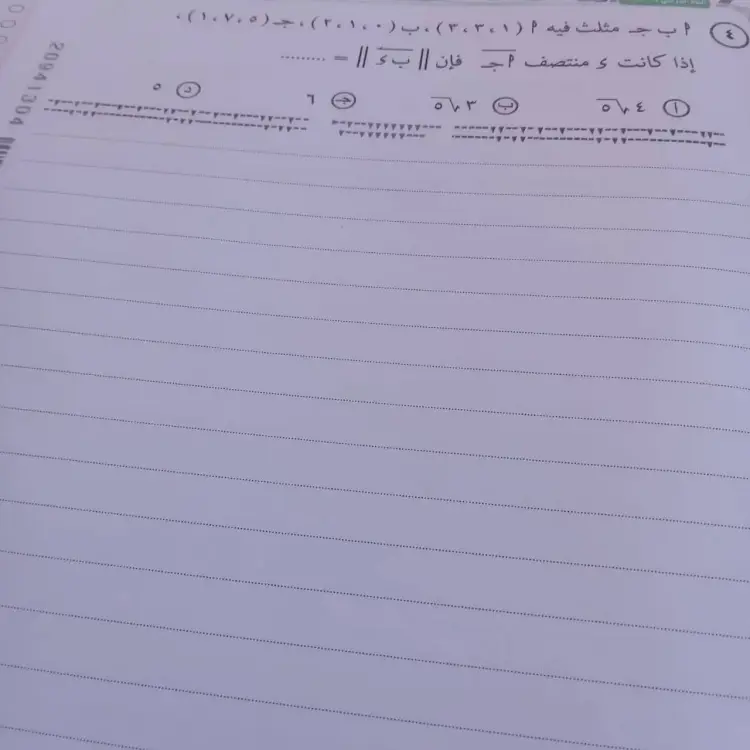 ٤ أ ب جـ مثلث فيه أ (١، ٣، ٣)، ب (٠، ١، ٢)، جـ (٥، ٧، ١)،
إذا كانت ء منتصف أجـ فإن || بء || = .........
أ ٤√٥ ب ٣√٥ جـ ٦ د ٥
20941304